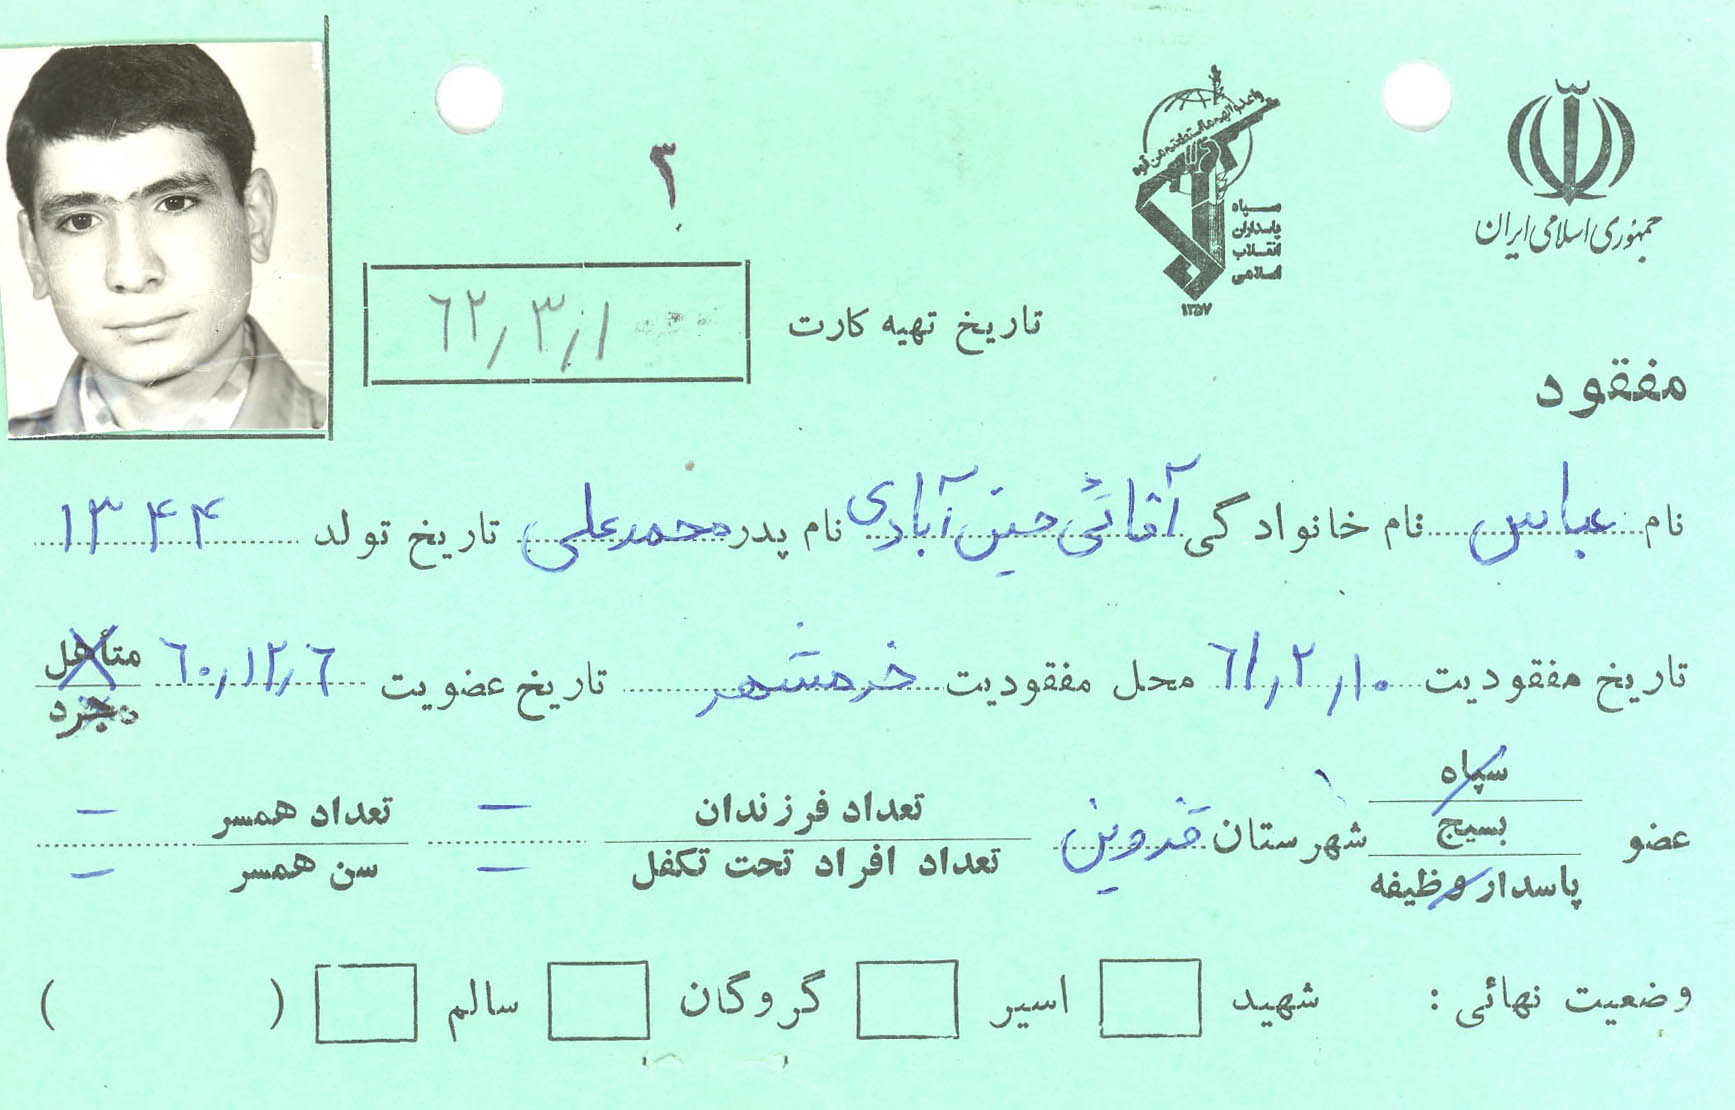 جمهوری اسلامی ایران
واعدوا لهم ما استطعتم من قوة
سپاه
پاسداران
انقلاب
اسلامی
۱۳۵۷
۲
تاریخ تهیه کارت ۶۲٫۳٫۱
مفقود
نام عباس نام خانوادگی آقائی حسین آبادی نام پدر محمدعلی تاریخ تولد ۱۳۴۴
تاریخ مفقودیت ۶۱٫۲٫۱۰ محل مفقودیت خرمشهر تاریخ عضویت ۶۰٫۱۲٫۶ متأهل
مجرد
عضو سپاه
بسیج
پاسدار وظیفه
شهرستان قزوین تعداد فرزندان — تعداد همسر —
تعداد افراد تحت تکفل — سن همسر —
وضعیت نهائی : شهید اسیر گروگان سالم ( )